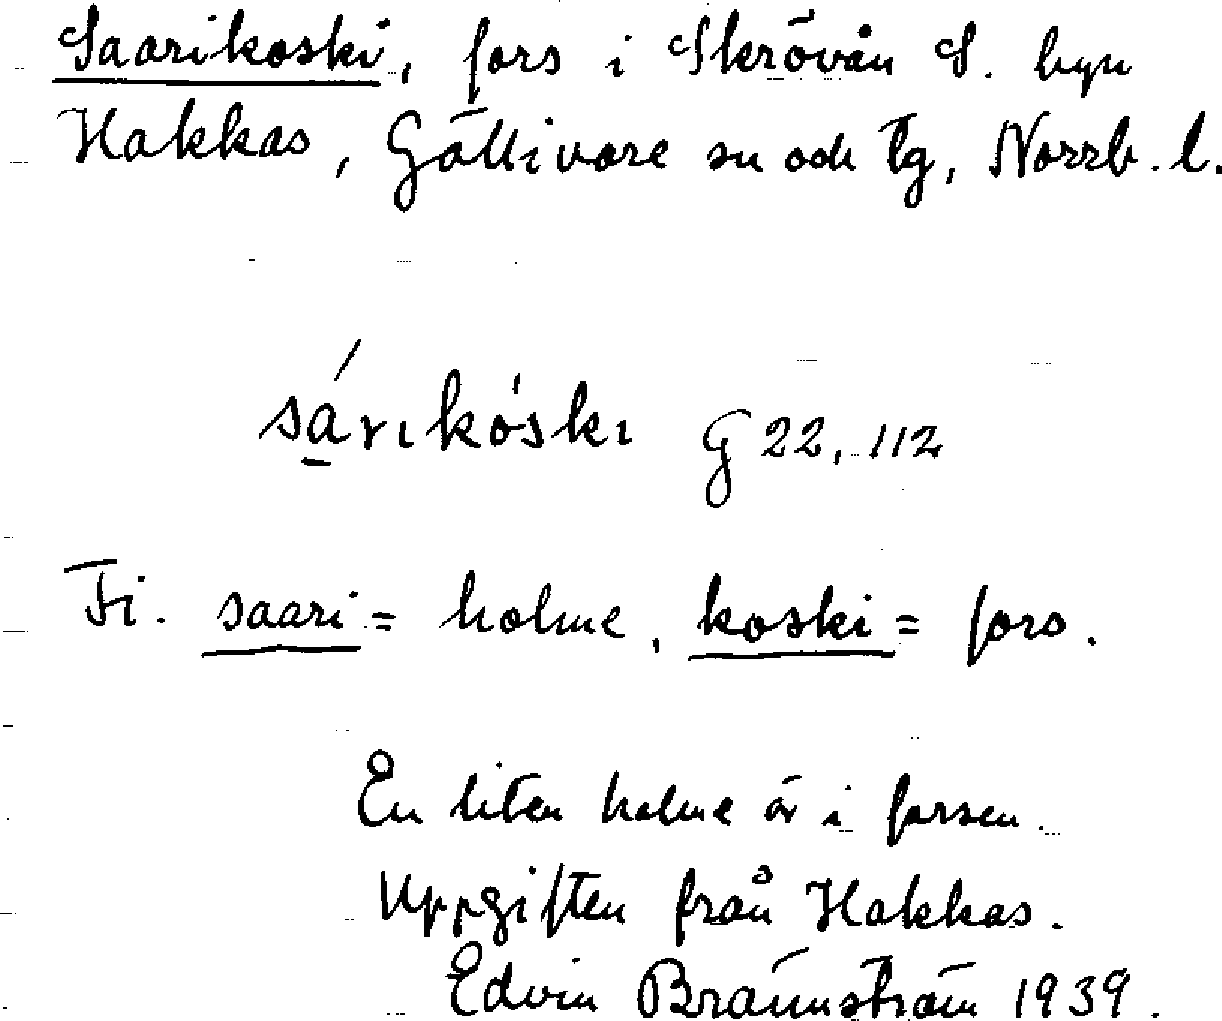 Saarikoski, fors i Skrövån S. byn
Hakkas, Gällivare sn och tg, Norrb. l.
sárikóski G 22, 112
Fi. saari = holme, koski = fors.
En liten holme är i forsen.
Uppgiften från Hakkas.
Edvin Brännström 1939.